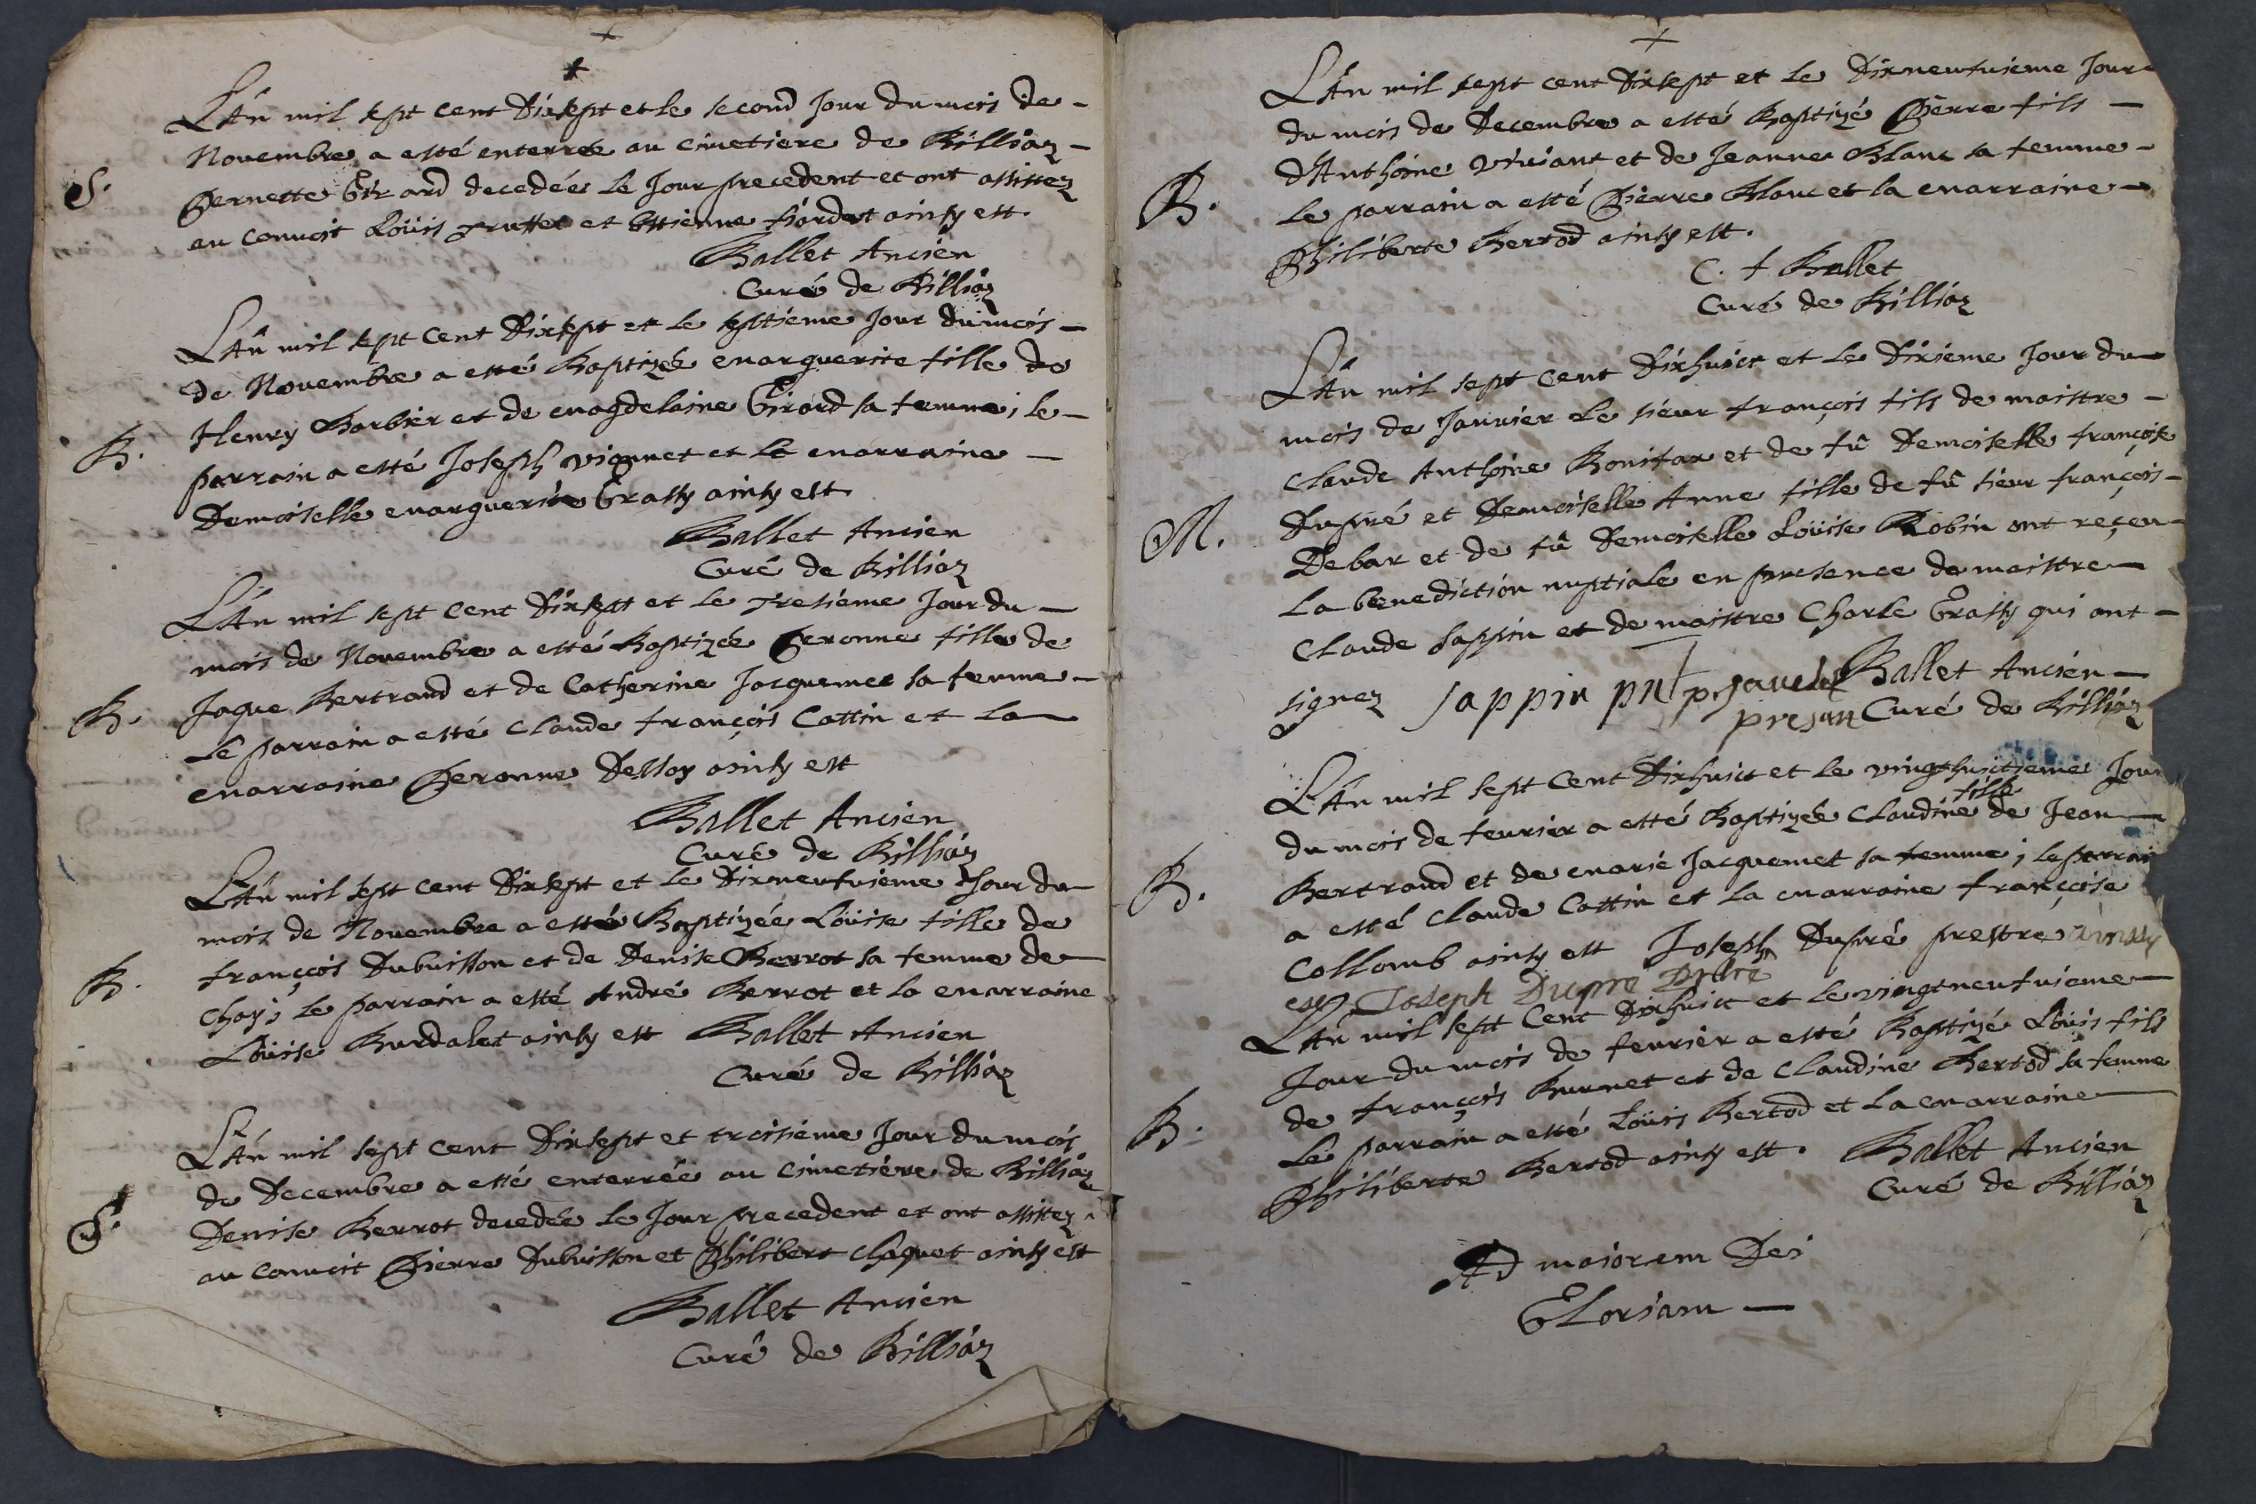 L'An mil sept cent Dixsept et le second Jour du mois de
Novembre a esté enterrée au cimetiere de Billiaz
S. Pernette Girard decedée le Jour precedent et ont assistez
au convoit Loüis Truffet et Estienne ainsy est.
Ballet Ancien
Curé de Billiaz
L'An mil sept cent Dixsept et le septieme Jour du mois
de Novembre a esté Baptizée Marguerite fille de
Henry Barbier et de Magdelaine Girard sa femme; le
B. parrain a esté Joseph et la Marraine
Demoiselle Marguerite Grassy ainsy est
Ballet Ancien
Curé de Billiaz
L'An mil sept cent Dixsept et le tresieme Jour du
mois de Novembre a esté Baptizée Peronne fille de
B. Jaque Bertrand et de Catherine Jacquemet sa femme
Le parrain a esté Claude François Cottin et La
Marraine Peronne ainsy est
Ballet Ancien
Curé de Billiaz
L'An mil sept cent Dixsept et le Dixneufvieme Jour du
mois de Novembre a esté Baptizée Loüise fille de
B. François Dubuisson et de Denise Berrot sa femme de
Choy; le parrain a esté André Berrot et la Marraine
Loüise Burdalet ainsy est Ballet Ancien
Curé de Billiaz
L'An mil sept cent Dixsept et troisieme Jour du mois
de Decembre a esté enterrée au Cimetiere de Billiaz
S. Denise Berrot decedée le Jour precedent et ont assistez
au convoit Pierre Dubuisson et Philibert Chaquet ainsy est
Ballet Ancien
Curé de Billiaz
L'An mil sept cent Dixsept et le Dixneufvieme Jour
du mois de Decembre a esté Baptizé Pierre fils
d'Anthoine Viviant et de Jeanne Blanc sa femme
B. Le parrain a esté Pierre Blanc et la Marraine
Philiberte Bertod ainsy est.
C. + Ballet
Curé de Billiaz
L'An mil sept cent Dixhuict et le Dixieme Jour du
mois de Janvier Le sieur François fils de maistre
Claude Anthoine Bonifax et de fû Demoiselle Françoise
M. Dupré et Demoiselle Anne fille de fû sieur François
Debar et de fû Demoiselle Loüise Robin ont reçeu
La benediction nuptiale en presence de maistre
Claude Sappin et de maistre Charle Grassy qui ont
signez Sappin pnt Ballet Ancien
presan Curé de Billiaz
L'An mil sept Cent Dixhuict et le vingthuictieme Jour
du mois de fevrier a esté Baptizée Claudine fille de Jean
B. Bertrand et de Marie Jacquemet sa femme; le parrain
a esté Claude Cottin et La Marraine Françoise
Collomb ainsy est Joseph Dupré prestre ainsy
est Joseph Dupré
L'An mil sept Cent Dixhuict et le vingtneufvieme
Jour du mois de fevrier a esté Baptizé Loüis fils
de François Burnet et de Claudine Bertod sa femme
B. Le parrain a esté Loüis Bertod et La Marraine
Philiberte Bertod ainsy est. Ballet Ancien
Curé de Billiaz
Ad maiorem Dei
Gloriam